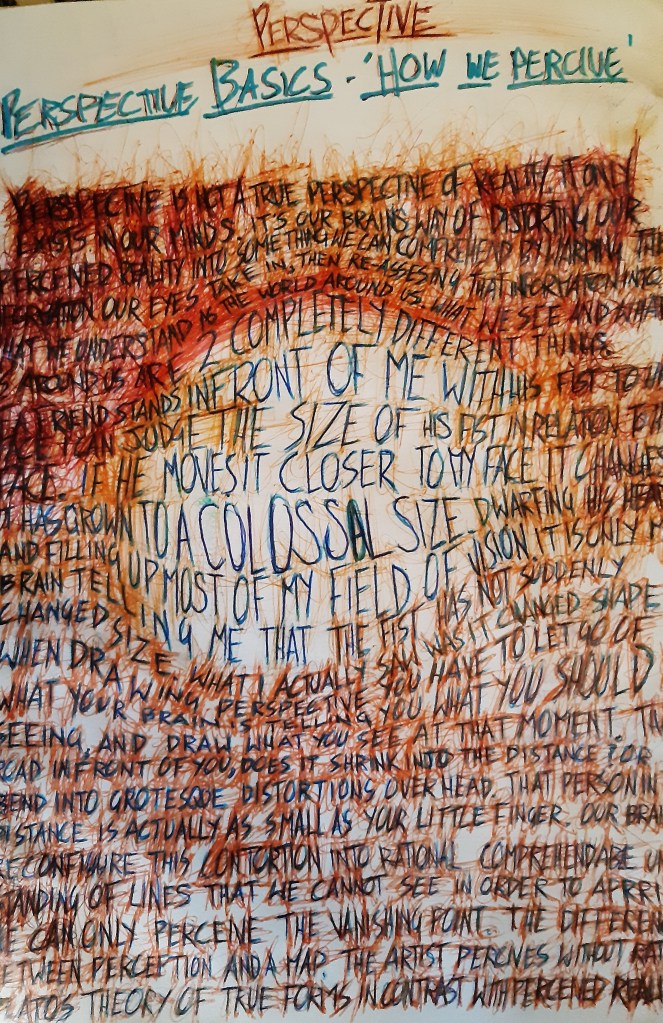 PERSPECTIVE
PERSPECTIVE BASICS - 'HOW WE PERCIVE'
PERSPECTIVE IS NOT A TRUE PERSPECTIVE OF REALITY, IT ONLY
EXISTS IN OUR MINDS. IT'S OUR BRAINS WAY OF DISTORTING OUR
PERCENED REALITY INTO SOMETHING WE CAN COMPREHEND BY WARPING THE
OUR EYES TAKE IN, THEN RE-ASSESING THAT INFORMATION INTO
WHAT WE UNDERSTAND AS THE WORLD AROUND US. WHAT WE SEE AND WHAT
AROUND US ARE 2 COMPLETELY DIFFERENT THINGS.
FRIEND STANDS IN FRONT OF ME WITH HIS FIST TO
FACE I CAN JUDGE THE SIZE OF HIS FIST IN RELATION TO
FACE. IF HE MOVES IT CLOSER TO MY FACE IT CHANGES
IT HAS GROWN TO A COLOSSAL SIZE. DWARFING HIS HEAD
AND FILLING UP MOST OF MY FIELD OF VISION. IT IS ONLY M
BRAIN TELLING ME THAT THE FIST HAS NOT SUDDENLY
CHANGED SIZE. WHAT I ACTUALLY SAW WAS IT CHANGED SHAPE
WHEN DRAWING PERSPECTIVE YOU HAVE TO LET GO OF
WHAT YOUR BRAIN IS TELLING YOU WHAT YOU SHOULD
SEEING, AND DRAW WHAT YOU SEE AT THAT MOMENT.
ROAD IN FRONT OF YOU, DOES IT SHRINK INTO THE DISTANCE? OR
BEND INTO GROTESQUE DISTORTIONS OVER HEAD. THAT PERSON IN
DISTANCE IS ACTUALLY AS SMALL AS YOUR LITTLE FINGER. OUR BRAI
RECONFIGURE THIS CONTORTION INTO RATIONAL COMPREHENDABLE UN
STANDING OF LINES THAT WE CANNOT SEE IN ORDER TO
WE CAN ONLY PERCENE THE VANISHING POINT. THE DIFFEREN
BETWEEN PERCEPTION AND A MAP. THE ARTIST PERCIVES WITHOUT RAT
PLATOS THEORY OF TRUE FORMS IN CONTRAST WITH PERCENED REALI